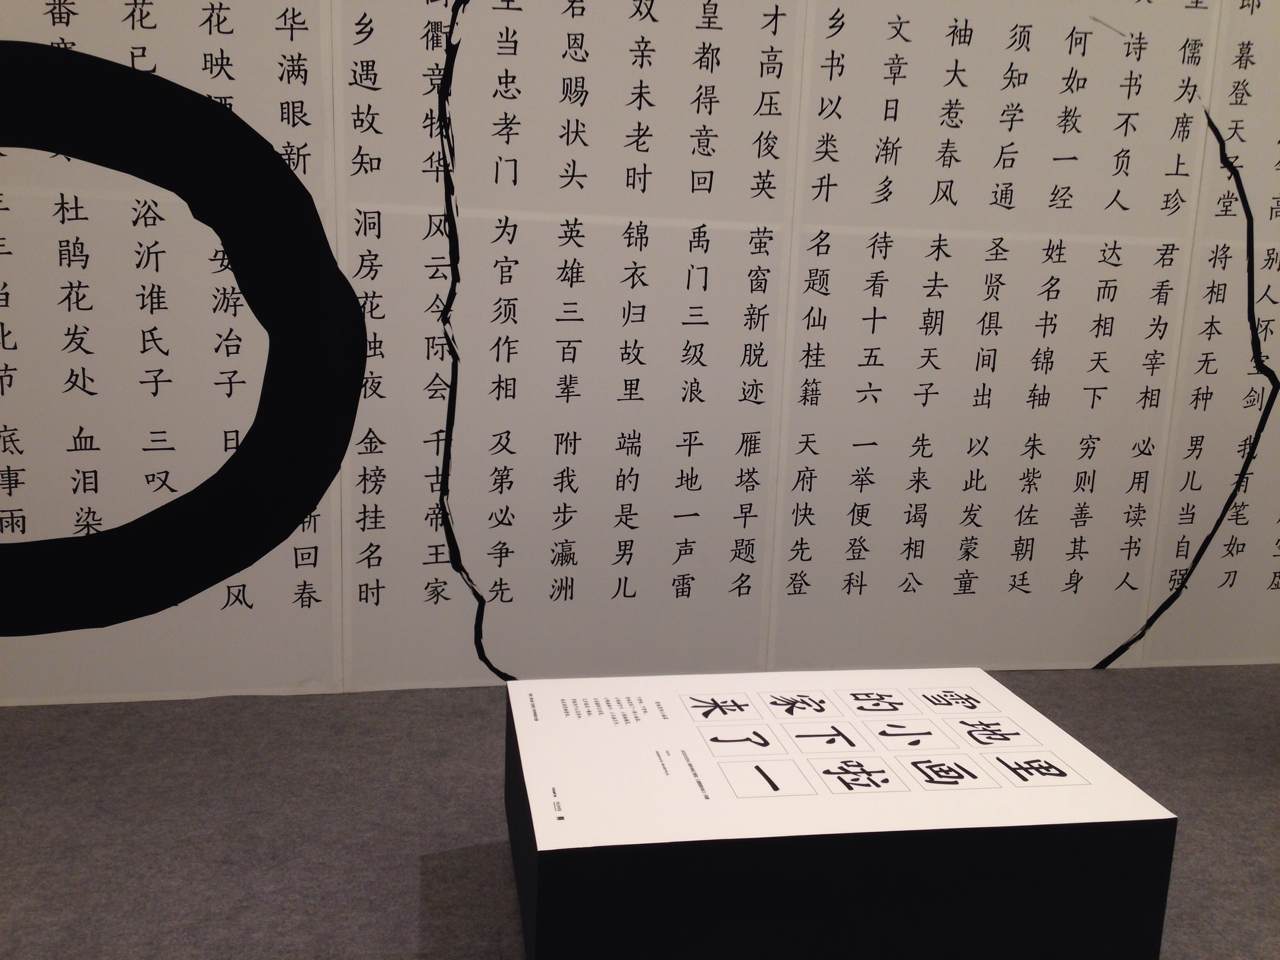 高
别人怀宝剑
我有笔如刀
郎
暮登天子堂
将相本无种
男儿当自强
儒为席上珍
君看为宰相
必用读书人
诗书不负人
达而相天下
穷则善其身
何如教一经
姓名书锦轴
朱紫佐朝廷
须知学后通
圣贤俱间出
以此发蒙童
袖大惹春风
未去朝天子
先来谒相公
文章日渐多
待看十五六
一举便登科
乡书以类升
名题仙桂籍
天府快先登
才高压俊英
萤窗新脱迹
雁塔早题名
皇都得意回
禹门三级浪
平地一声雷
双亲未老时
锦衣归故里
端的是男儿
君恩赐状头
英雄三百辈
附我步瀛洲
当忠孝门
为官须作相
及第必争先
衢竞物华
风云今际会
千古帝王家
乡遇故知
洞房花烛夜
金榜挂名时
华满眼新
渐回春
花映酒
安游冶子
日
风
花已
浴沂谁氏子
三叹
番
杜鹃花发处
血泪染
年年当此节
底事雨
雪地里
的小画
家下啦
来了一